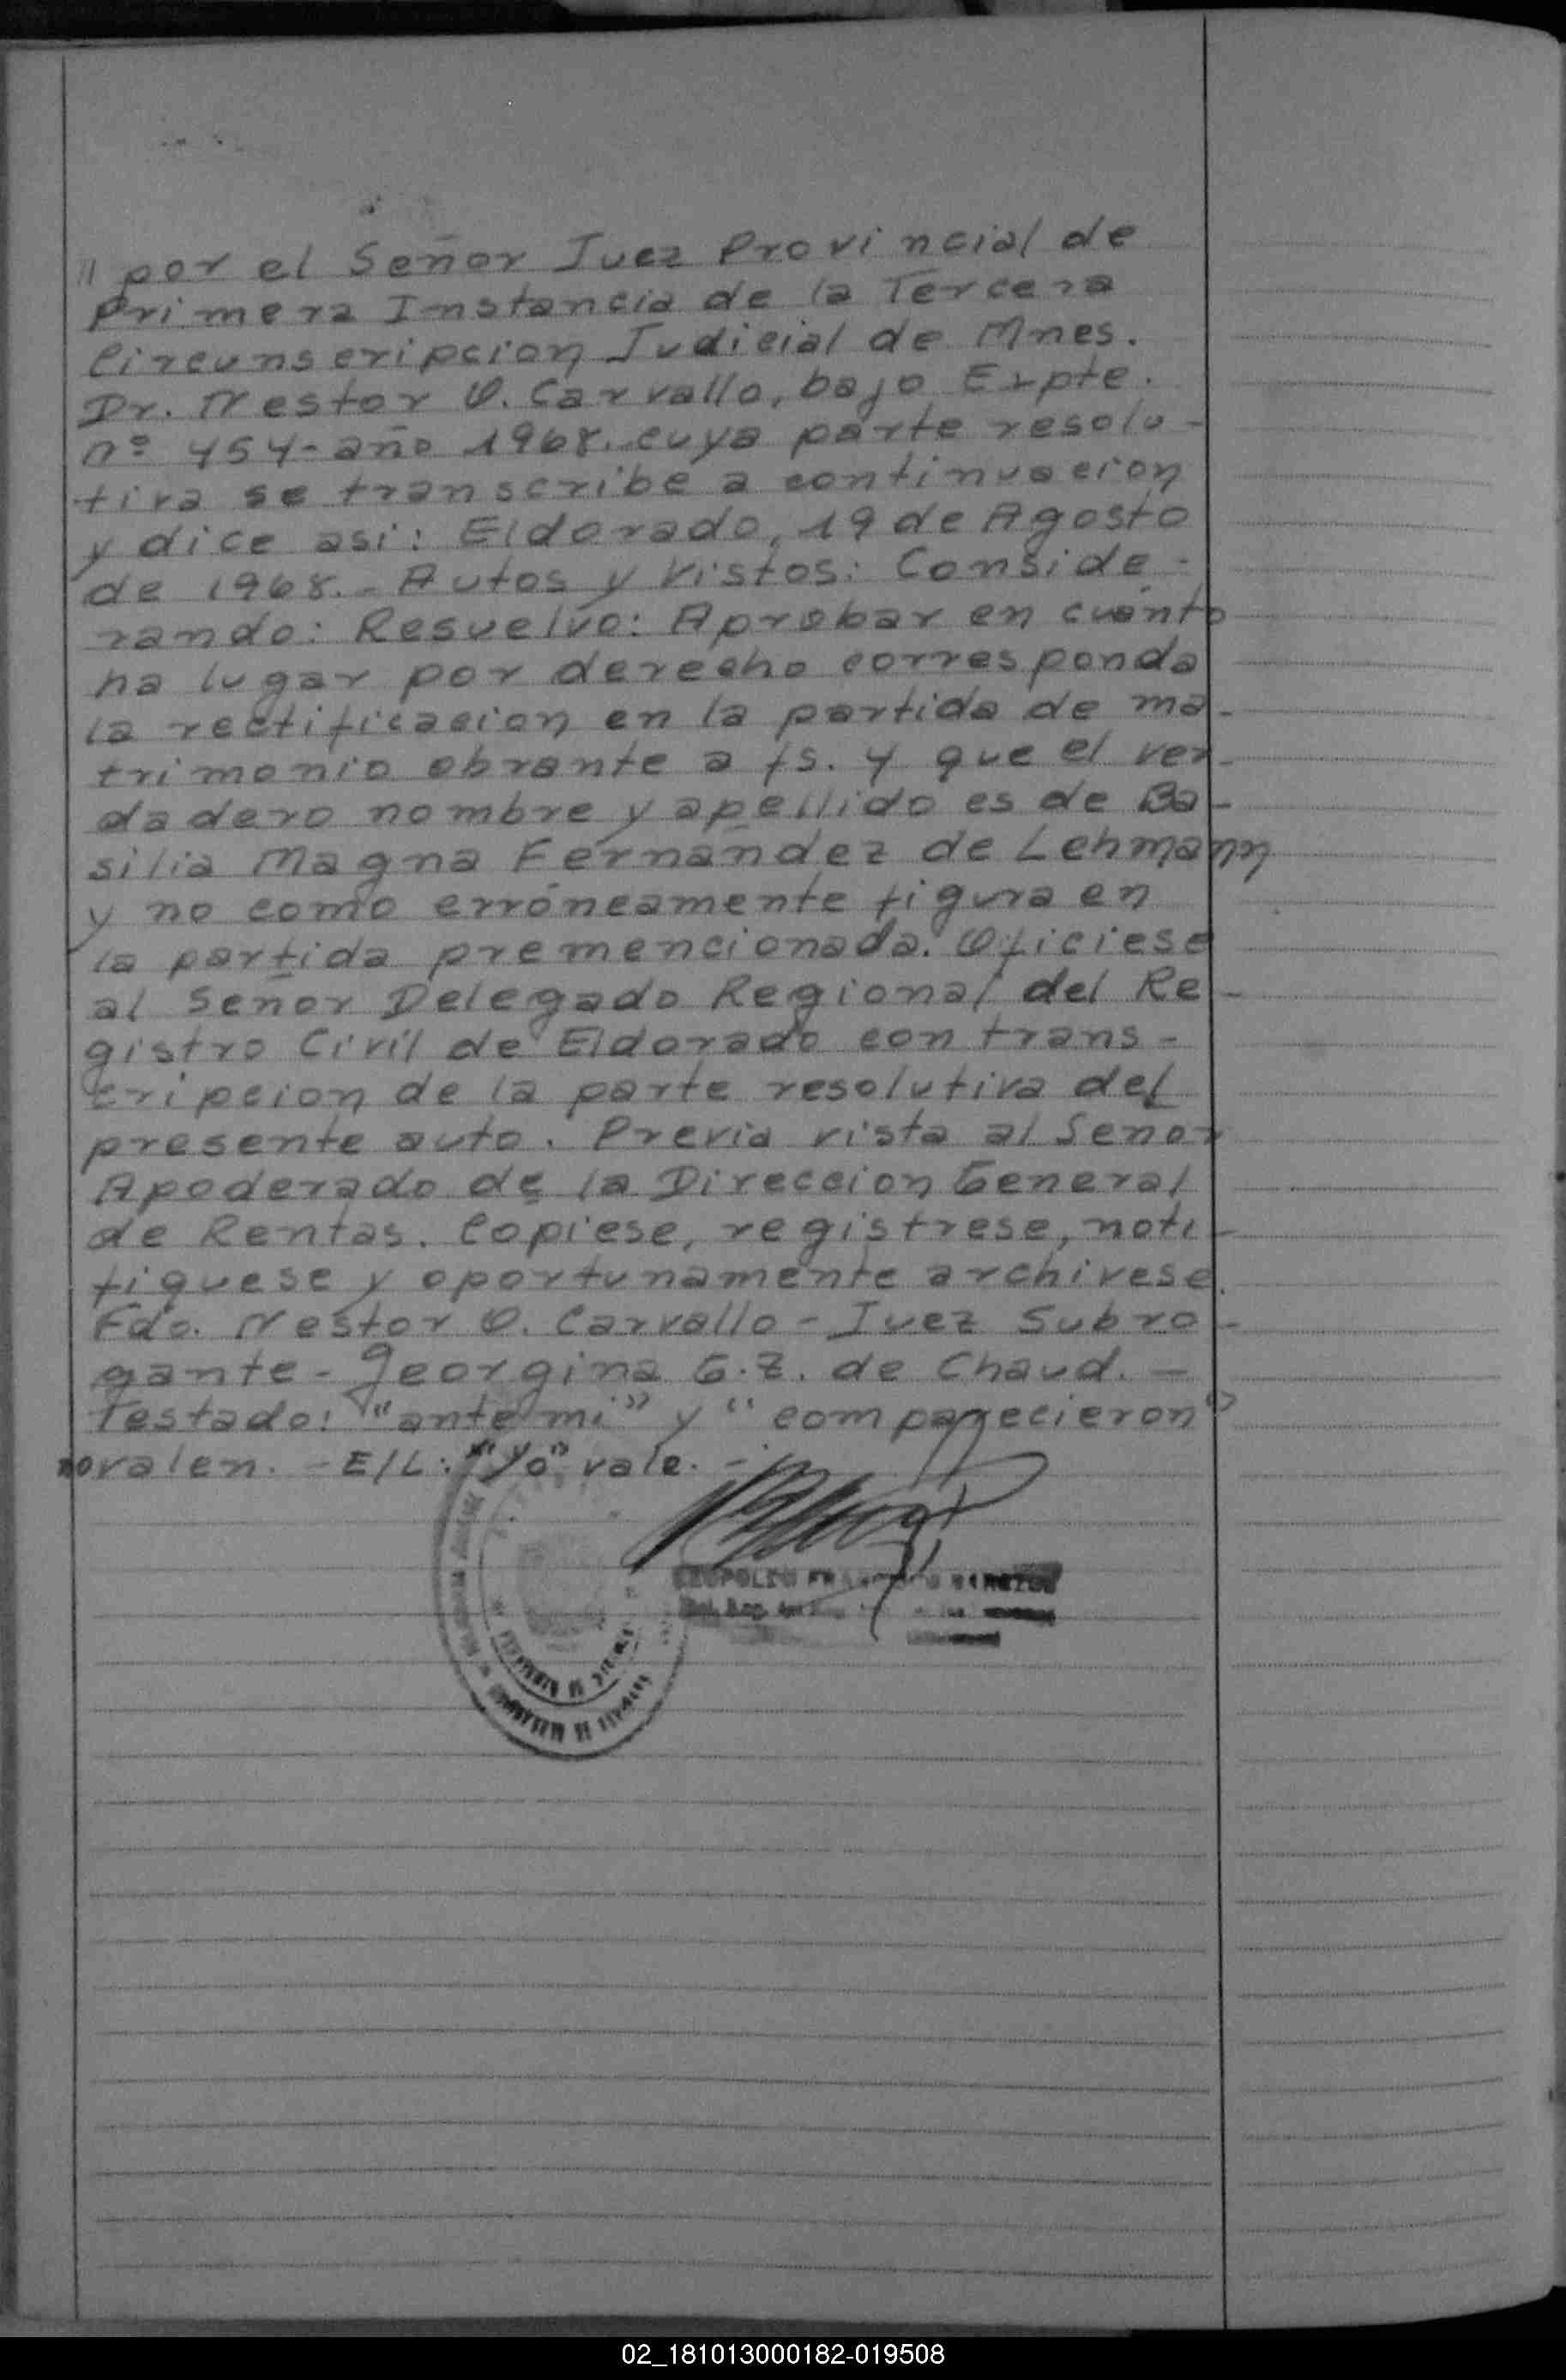 // por el Señor Juez Provincial de
Primera Instancia de la Tercera
Circunscripcion Judicial de Mnes.
Dr. Nestor O. Carvallo, bajo Expte.
nº 454-año 1968. cuya parte resolu-
tiva se transcribe a continuacion
y dice asi: Eldorado, 19 de Agosto
de 1968.- Autos y Vistos: Conside-
rando: Resuelvo: Aprobar en cuanto
ha lugar por derecho corresponda
la rectificacion en la partida de ma-
trimonio obrante a fs. 4 que el ver-
dadero nombre y apellido es de Ba-
silia Magna Fernández de Lehmann
y no como erróneamente figura en
la partida premencionada. Ofíciese
al Señor Delegado Regional del Re-
gistro Civil de Eldorado con trans-
cripcion de la parte resolutiva del
presente auto. Previa vista al Señor
Apoderado de la Direccion General
de Rentas. Copiese, registrese, noti-
fiquese y oportunamente archivese.
Fdo. Nestor O. Carvallo - Juez Subro-
gante - Georgina G.Z. de Chaud. -
Testado: "ante mi" y "comparecieron"
no valen. - E/L: "Yo" vale. -
02_181013000182-019508